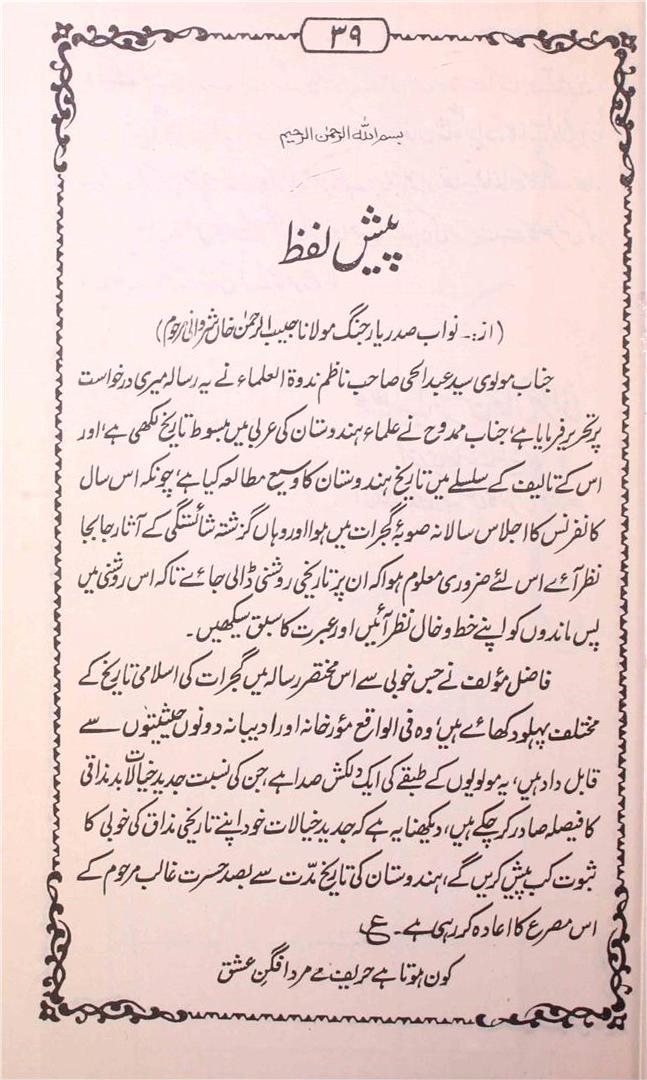 ۳۹
بسم اللہ الرحمٰن الرحیم
پیش لفظ
(از:۔ نواب صدر یار جنگ مولانا حبیب الرحمٰن خاں شروانی مرحوم)
جناب مولوی سید عبدالحی صاحب ناظم ندوۃ العلماء نے یہ رسالہ میری درخواست
پر تحریر فرمایا ہے، جناب ممدوح نے علماء ہندوستان کی عربی میں مبسوط تاریخ لکھی ہے، اور
اس کے تالیف کے سلسلے میں تاریخ ہندوستان کا وسیع مطالعہ کیا ہے، چونکہ اس سال
کانفرنس کا اجلاس سالانہ صوبۂ گجرات میں ہوا اور وہاں گزشتہ شائستگی کے آثار جابجا
نظر آئے اس لئے ضروری معلوم ہوا کہ ان پر تاریخی روشنی ڈالی جائے تاکہ اس روشنی میں
پس ماندوں کو اپنے خط و خال نظر آئیں اور عبرت کا سبق سیکھیں۔
فاضل مؤلف نے جس خوبی سے اس مختصر رسالہ میں گجرات کی اسلامی تاریخ کے
مختلف پہلو دکھائے ہیں، وہ فی الواقع مؤرخانہ اور ادیبانہ دونوں حیثیتوں سے
قابل داد ہیں، یہ مولویوں کے طبقے کی ایک دلکش صدا ہے، جن کی نسبت جدید خیالات بدمذاقی
کا فیصلہ صادر کر چکے ہیں، دیکھنا یہ ہے کہ جدید خیالات خود اپنے تاریخی مذاق کی خوبی کا
ثبوت کب پیش کریں گے، ہندوستان کی تاریخ مدّت سے بصد حسرت غالب مرحوم کے
اس مصرع کا اعادہ کر رہی ہے۔ ع
کون ہوتا ہے حریف مے مرد افگنِ عشق